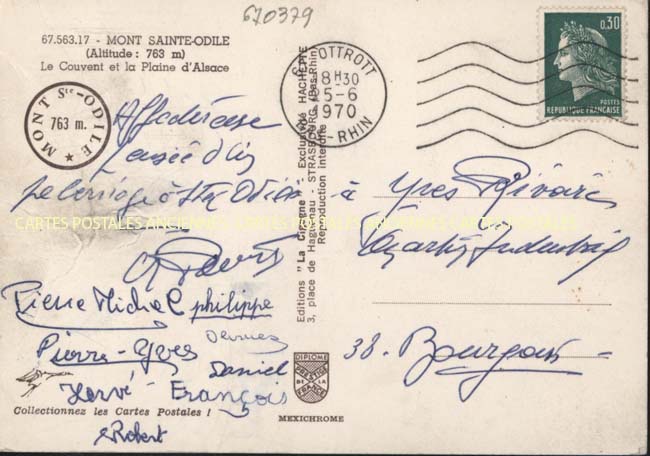 670379
67.563.17 - MONT SAINTE-ODILE
(Altitude : 763 m)
Le Couvent et la Plaine d'Alsace
MONT Ste-ODILE
763 m.
Affectueuse
pensée d'un
à Ste Odile
Pierre Michel philippe
Pierre-Yves
Daniel
Hervé - François
Robert
Collectionnez les Cartes Postales !
Editions "La Cigogne" - Exclusivité HACHETTE
3, place de Haguenau - STRASBOURG (Bas-Rhin)
Reproduction interdite
MEXICHROME
DIPLOME
PRESTIGE
DE LA
FRANCE
OTTROTT
8H30
5-6
1970
RHIN
0,30
POSTES
REPUBLIQUE FRANÇAISE
à Yves
Quartier Industriel
38. Bourgoin
CARTES POSTALES ANCIENNES